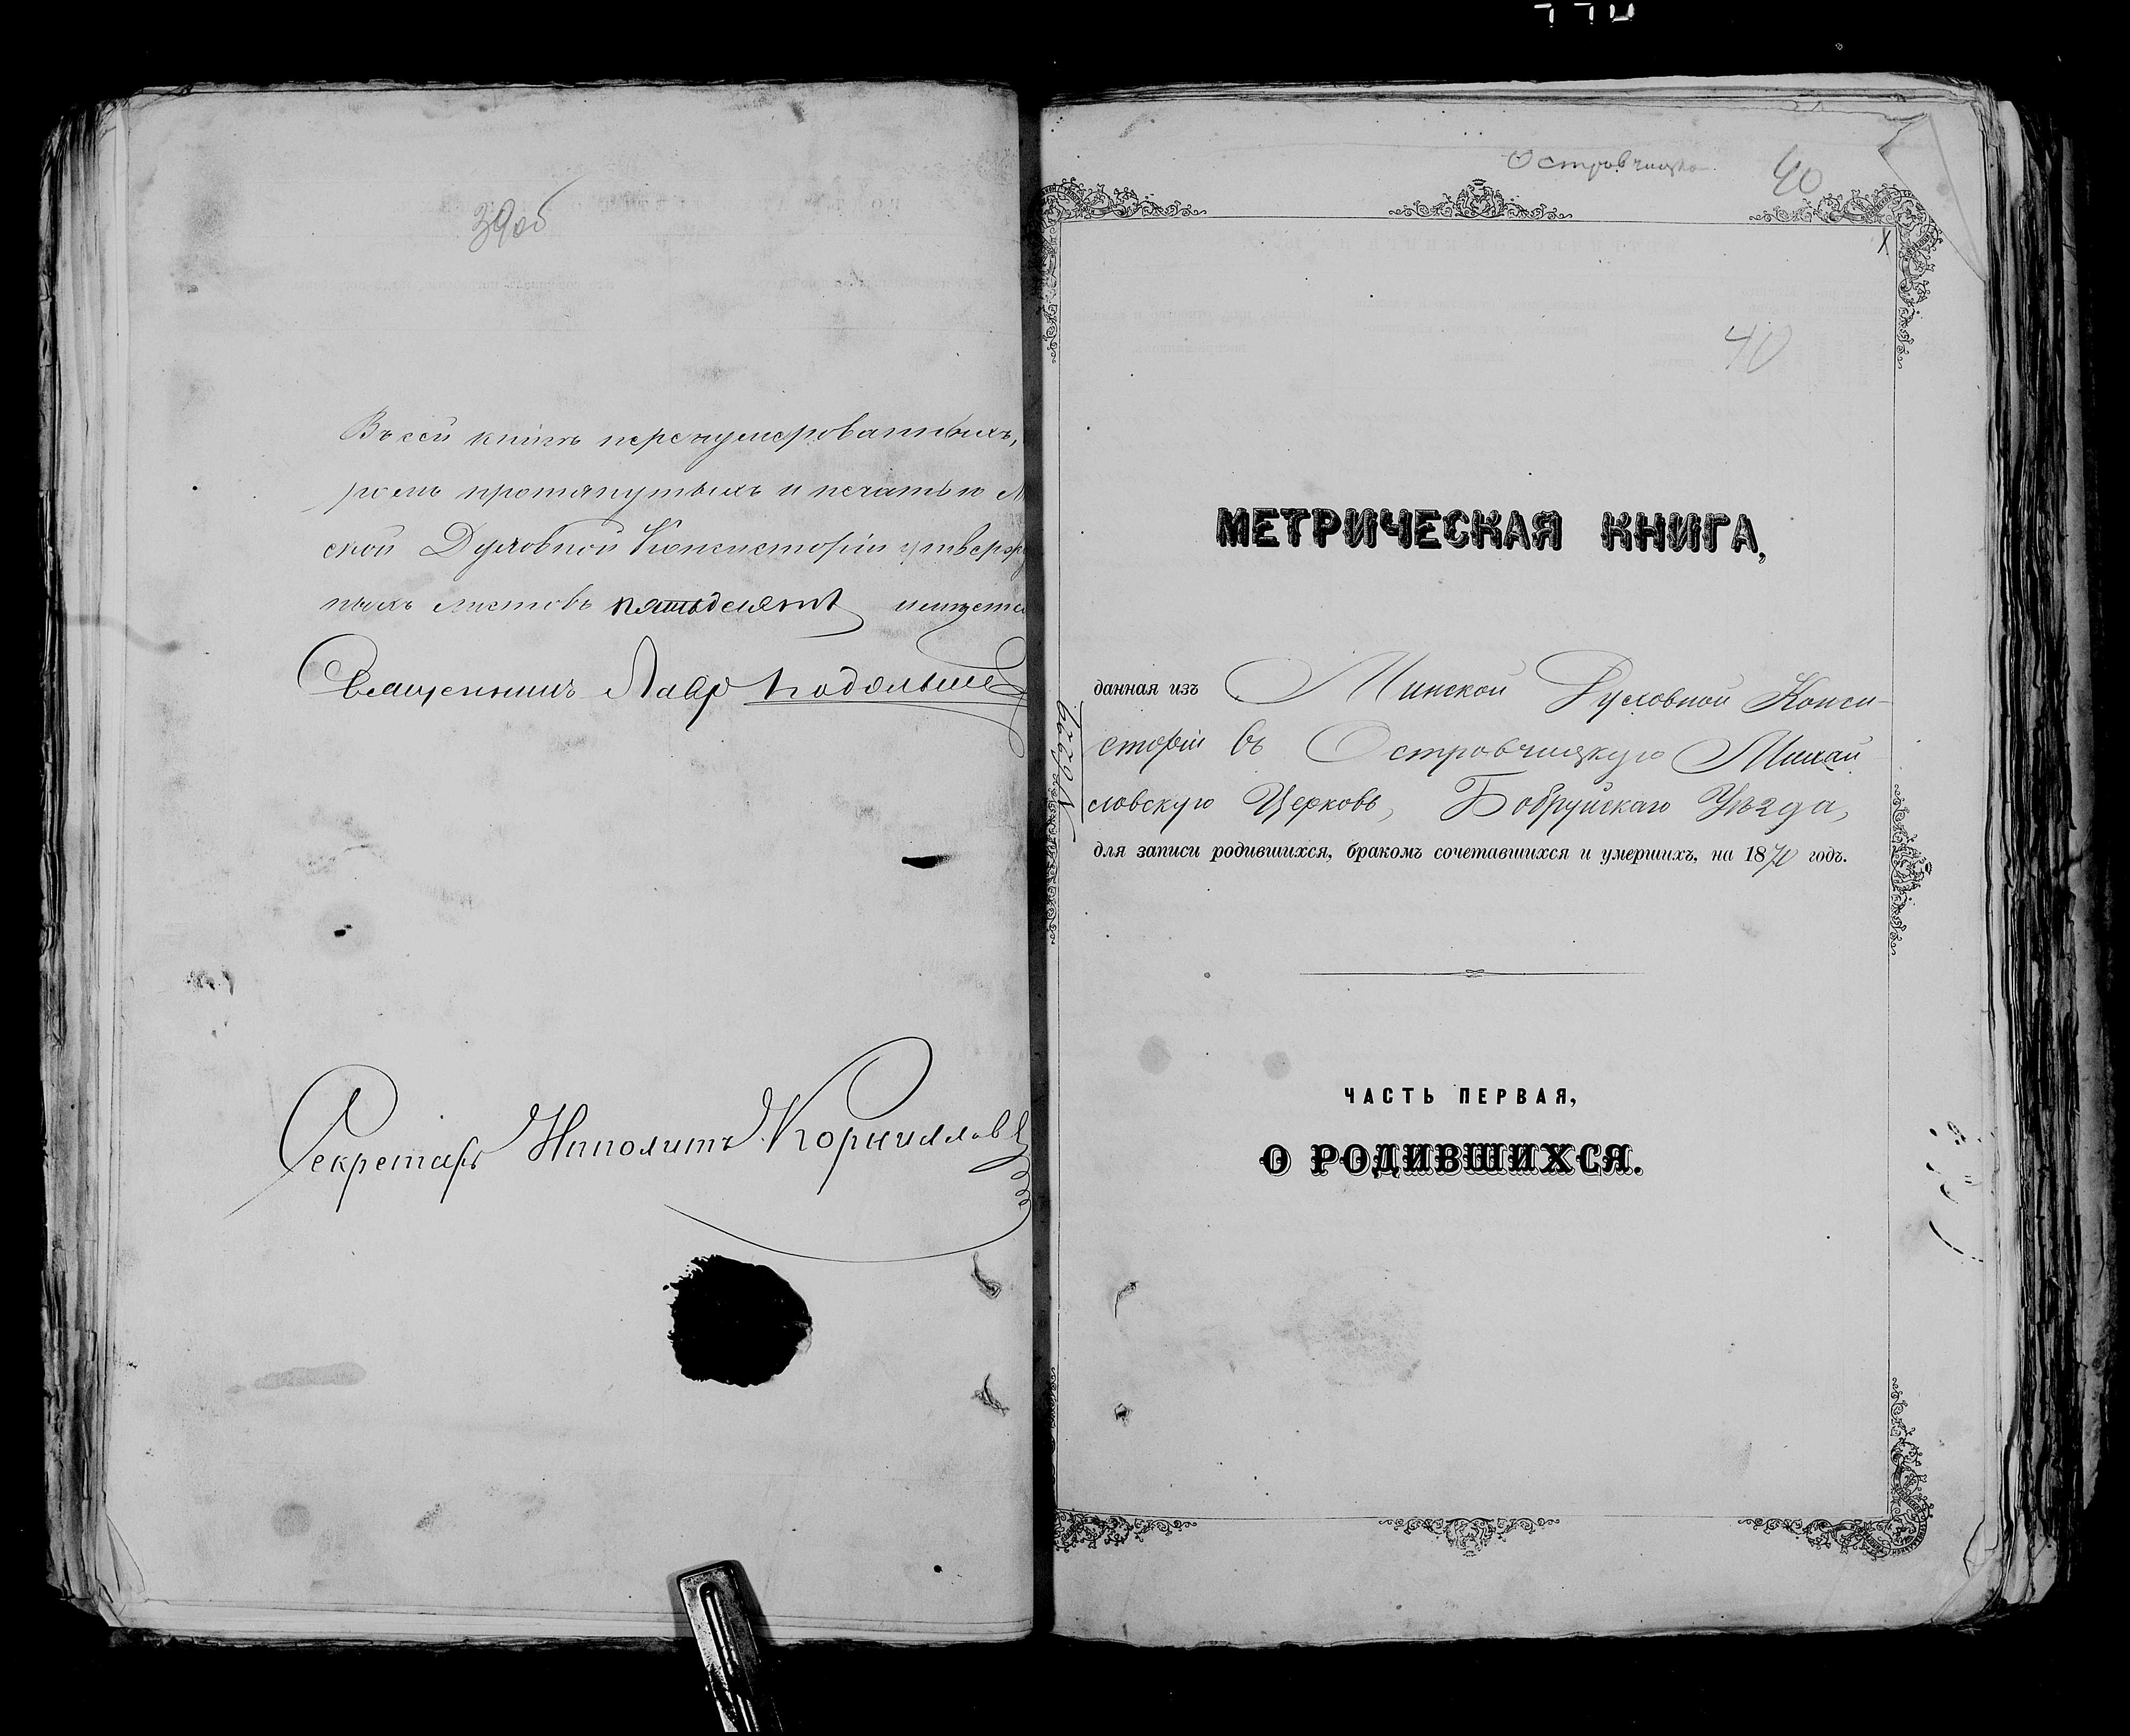 39об
Въ сей книгѣ перенумерованныхъ,
ромъ протянутыхъ и печатью М
ской Духовной Консисторіи утверж
ныхъ листовъ пятьдесятъ
Священникъ Лавръ
Секретарь Иполитъ Корниллов
Островчицкая
40
40
МЕТРИЧЕСКАЯ КНИГА,
данная изъ Минской Духовной Конси-
сторіи въ Островчицкую Михай
ловскую Церковь, Бобруйскаго Уѣзда,
для записи родившихся, бракомъ сочетавшихся и умершихъ, на 1870 годъ.
ЧАСТЬ ПЕРВАЯ,
О РОДИВШИХСЯ.